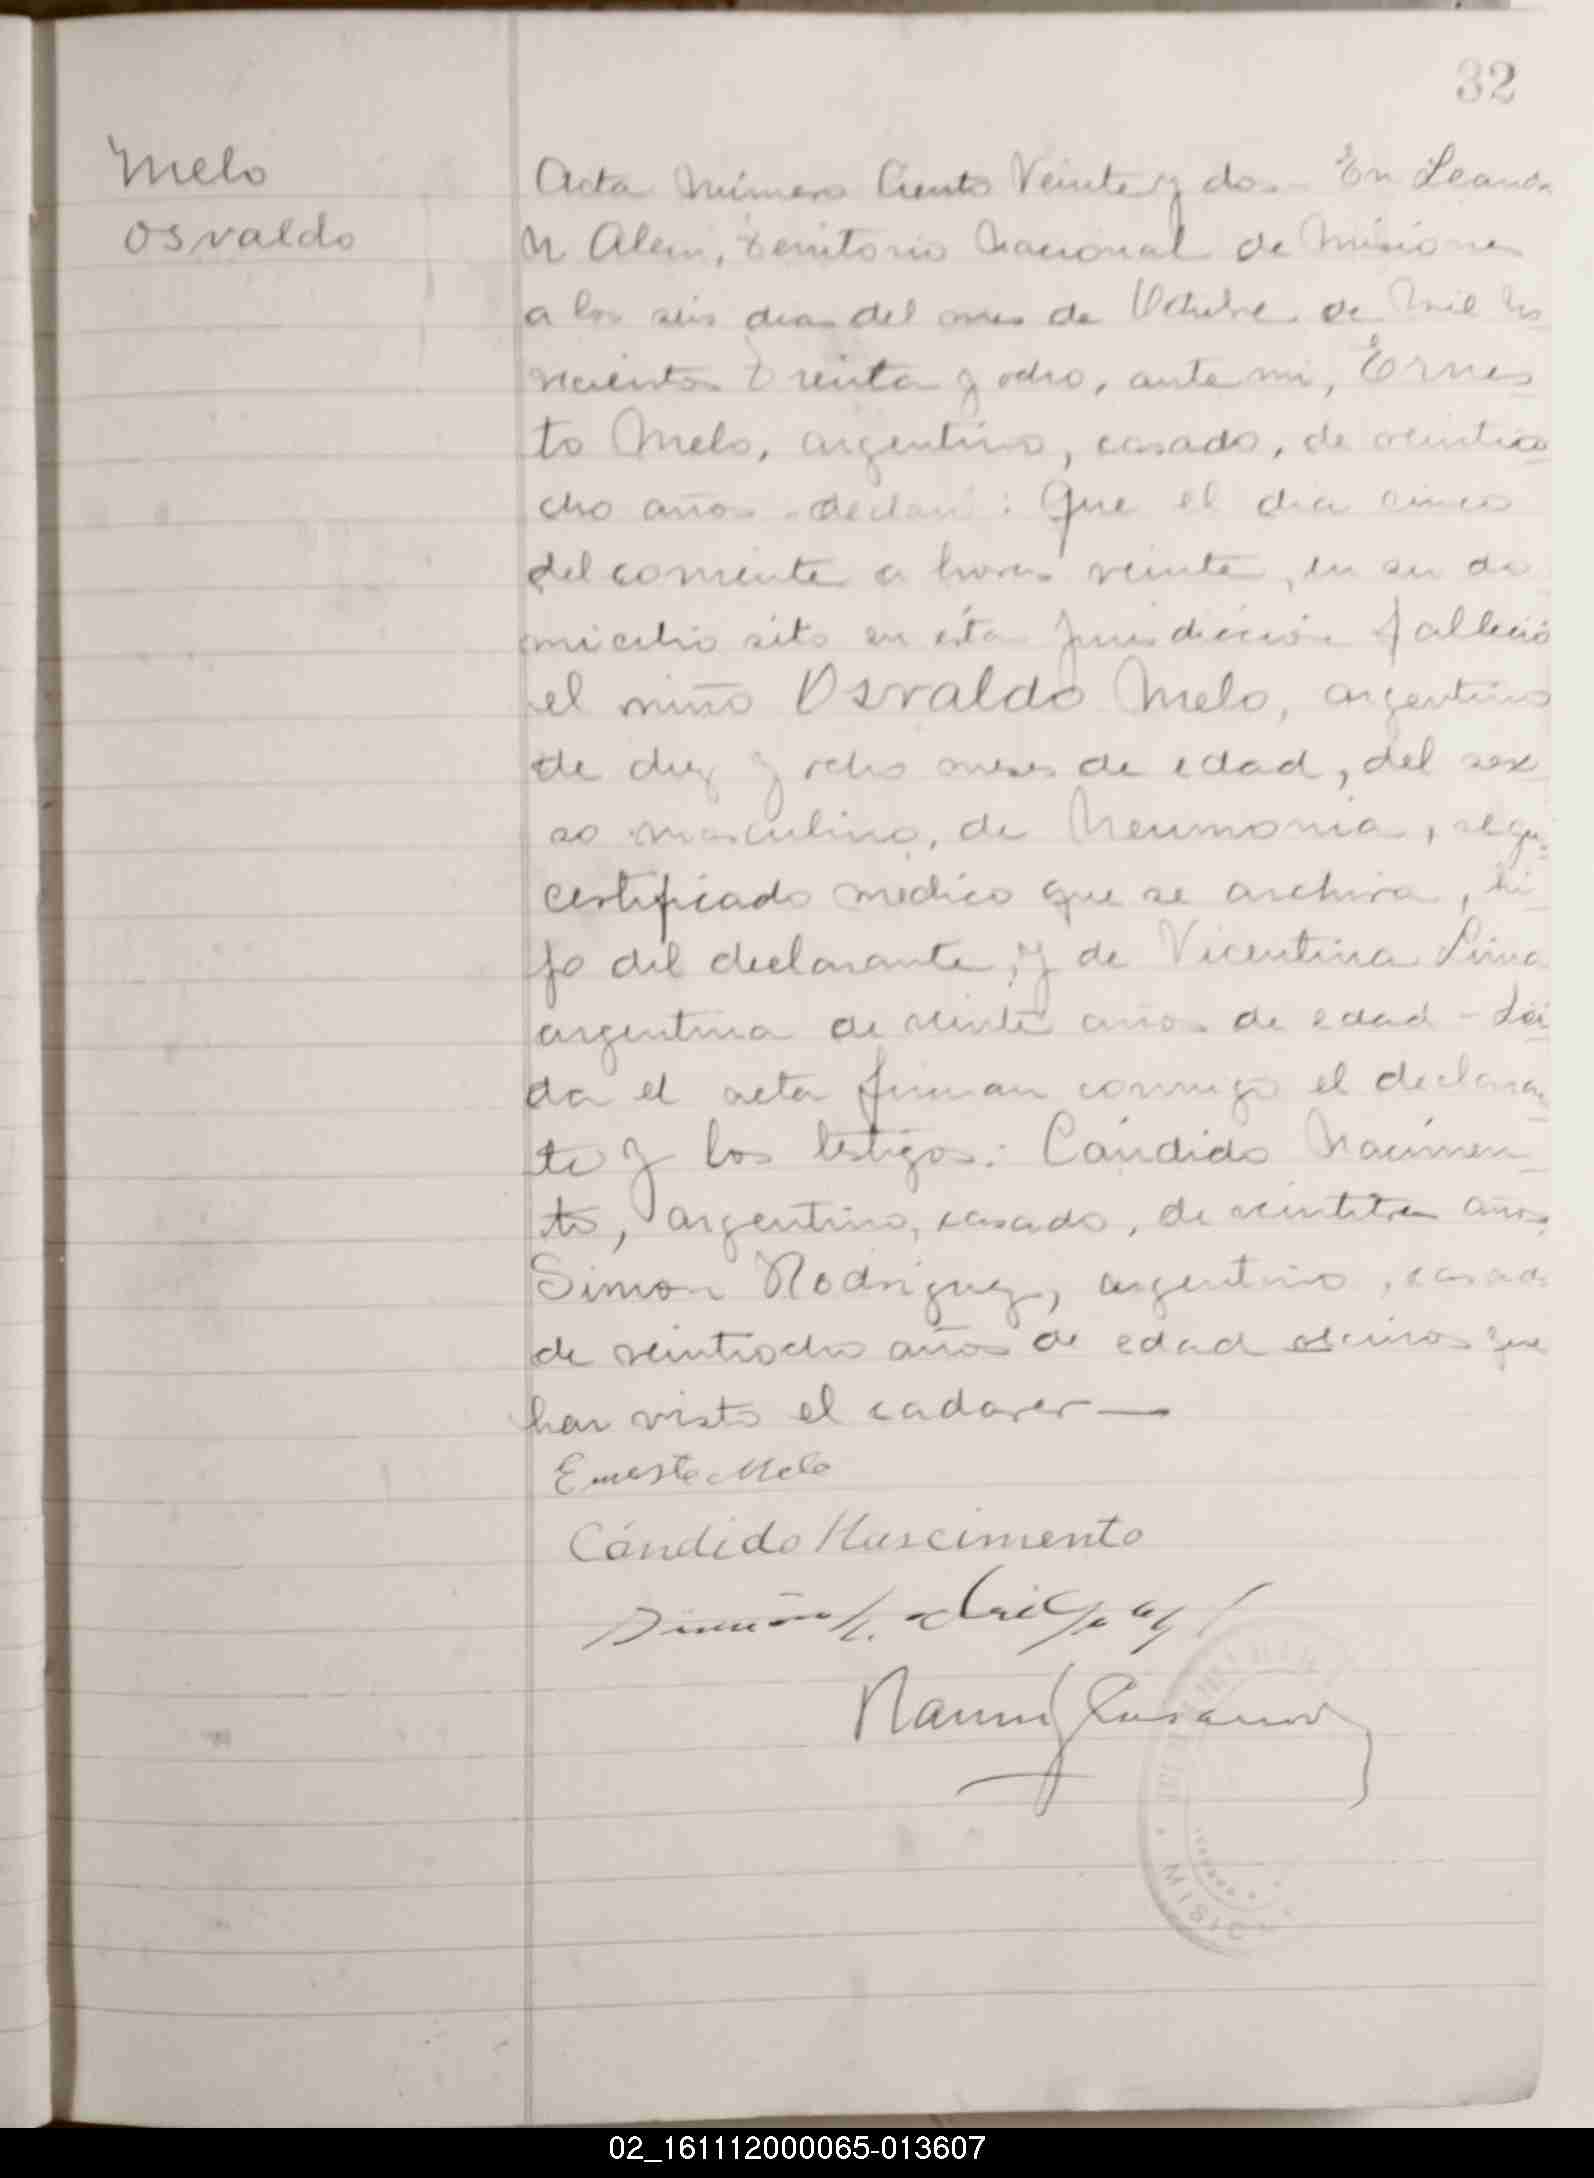 32
Melo
Osvaldo
Acta Número Ciento Veinte y dos - En Leand
N Alem, territorio Nacional de Misiones
a los seis dias del mes de Octubre de Mil no
vecientos treinta y ocho, ante mi, Ernes
to Melo, argentino, casado, de veintio
cho años declaró: Que el dia cinco
del corriente a horas veinte, en su do
micilio sito en ésta jurisdicción falleció
el niño Osvaldo Melo, argentino
de diez y ocho meses de edad, del sex
so masculino, de Neumonia, segun
certificado medico que se archiva, hi
jo del declarante, y de Vicentina Lima
argentina de veinte años de edad - Lei
da el acta firman conmigo el declaran
te y los testigos: Cándido Nacimen
to, argentino, casado, de veintitres años
Simon Rodriguez, argentino, casado
de veintiocho años de edad vecinos que
han visto el cadaver —
Ernesto Melo
Cándido Nascimento
MISIO
02_161112000065-013607